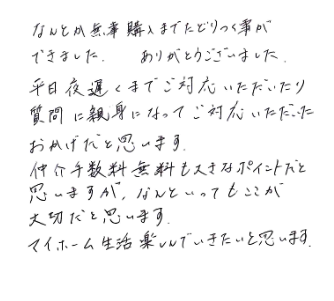 なんとか無事購入までたどりつく事が
できました。 ありがとうございました。
平日夜遅くまでご対応いただいたり
質問に親身になってご対応いただいた
おかげだと思います。
仲介手数料無料も大きなポイントだと
思いますが、なんといってもここが
大切だと思います。
マイホーム生活楽しんでいきたいと思います。